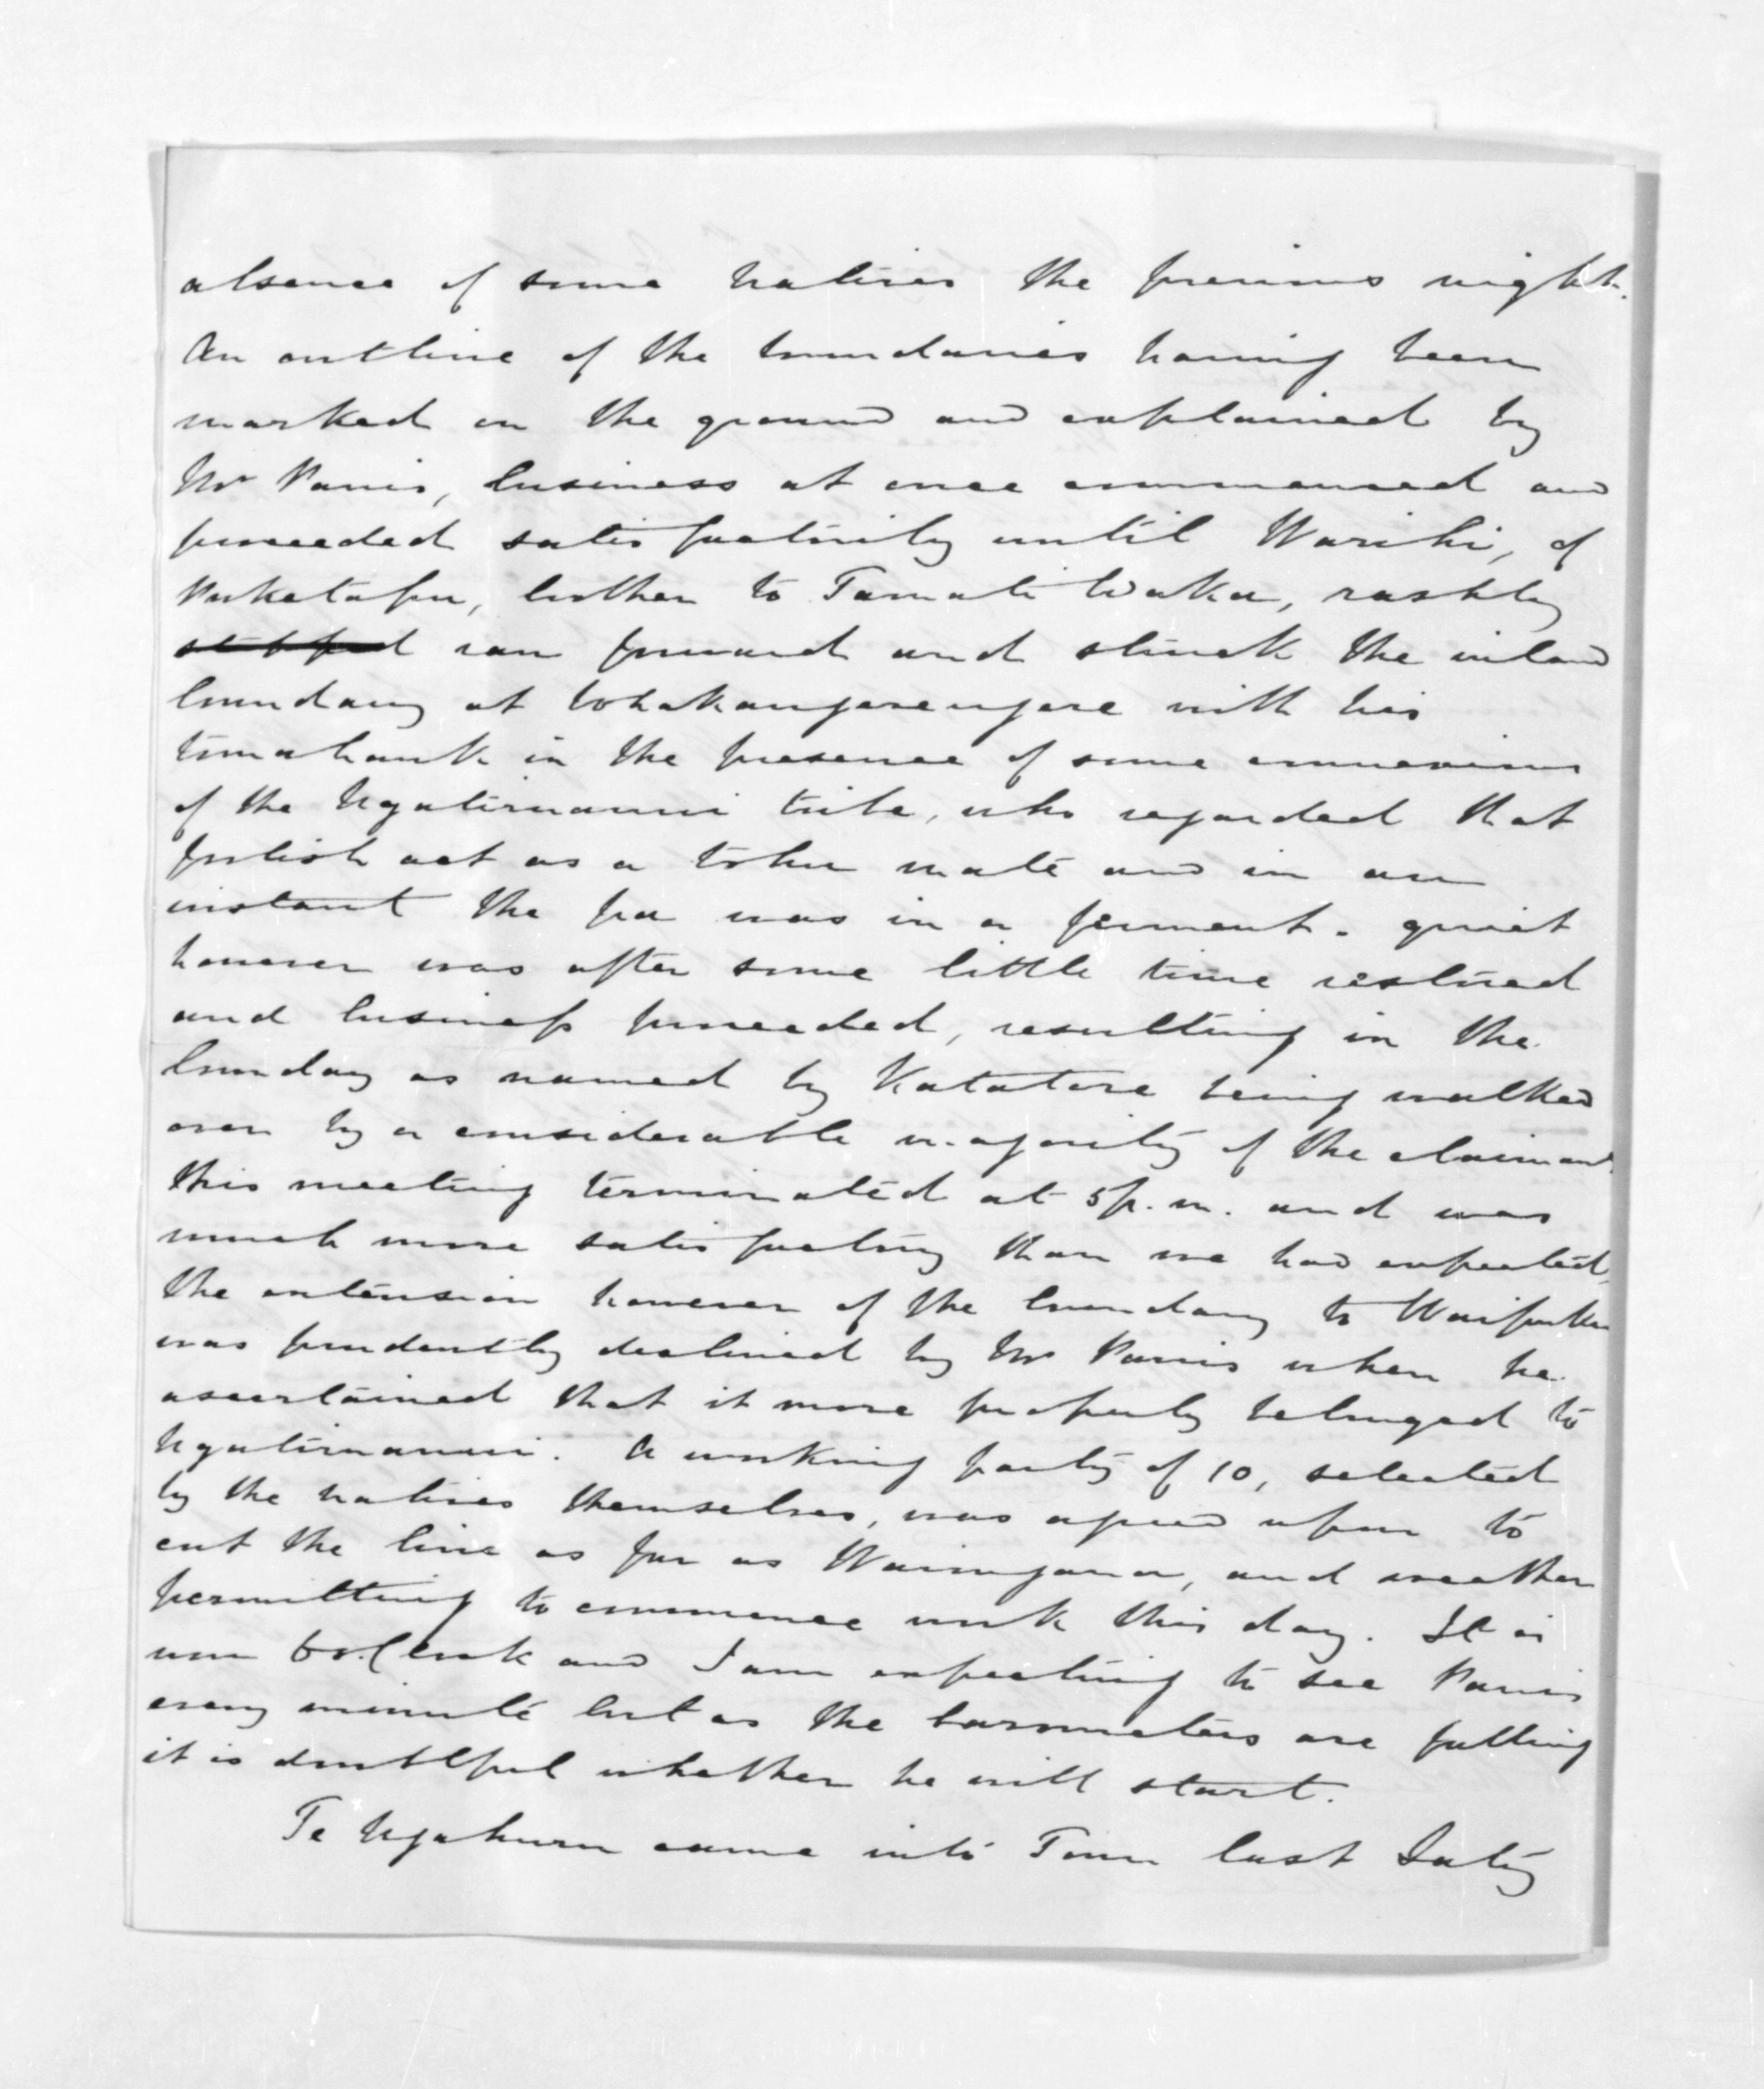 absence of some natives the previous night.
An outline of the boundaries having been
marked on the ground and explained by
Mr Parris, business at once commenced and
proceeded satisfactorily until Warihi, of
Puketapu, brother to Tamati Waka, rashly
ran forward and struck the inland
boundary at Whakangerengere with his
tomahawk in the presence of some connexions
of the Ngatiruanui tribe, who regarded that
foolish act as a tohu mate and in an
instant the pa was in a ferment. quiet
however was after some little time restored
and business proceeded, resulting in the
boundary as named by Katatore being walked
over by a considerable majority of the claimants
this meeting terminated at 5 p.m. and was
much more satisfactory than we had expected,
the extension however of the boundary to Waipuku
was prudently declined by Mr Parris when he
ascertained that it more properly belonged to
Ngatiruanui. A working party of 10, selected
by the natives themselves, was agreed upon to
cut the line as far as Waiongana, and weather
permitting to commence work this day. It is
now 6 o.Clock and I am expecting to see Parris
every minute but as the barometers are falling
it is doubtful whether he will start.
Te Ngahuru came into Town last Saty